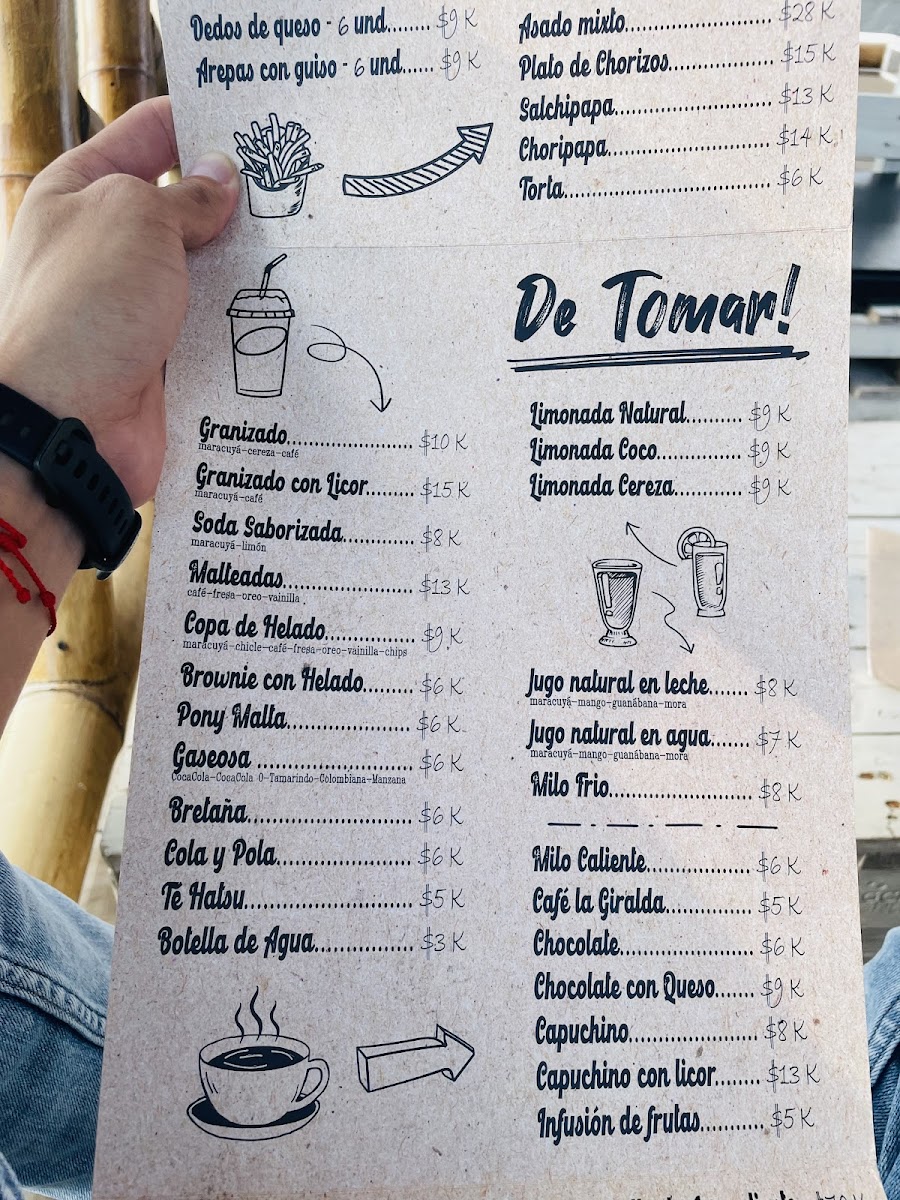 Dedos de queso - 6 und...... $9 K
Arepas con guiso - 6 und...... $9 K
Asado mixto........................ $28 K
Plato de Chorizos.................. $15 K
Salchipapa........................... $13 K
Choripapa............................ $14 K
Torta.................................. $6 K
De Tomar!
Granizado....................... $10 K
maracuyá-cereza-café
Granizado con Licor......... $15 K
maracuyá-café
Soda Saborizada............. $8 K
maracuyá-limón
Malteadas........................ $13 K
café-fresa-oreo-vainilla
Copa de Helado................ $9 K
maracuyá-chicle-café-fresa-oreo-vainilla-chips
Brownie con Helado......... $6 K
Pony Malta...................... $6 K
Gaseosa ......................... $6 K
CocaCola-CocaCola 0-Tamarindo-Colombiana-Manzana
Bretaña.......................... $6 K
Cola y Pola...................... $6 K
Té Hatsu......................... $5 K
Botella de Agua................ $3 K
Limonada Natural.......... $9 K
Limonada Coco............... $9 K
Limonada Cereza............ $9 K
Jugo natural en leche....... $8 K
maracuyá-mango-guanábana-mora
Jugo natural en agua....... $7 K
maracuyá-mango-guanábana-mora
Milo Frio........................ $8 K
Milo Caliente................... $6 K
Café la Giralda............... $5 K
Chocolate........................ $6 K
Chocolate con Queso....... $9 K
Capuchino....................... $8 K
Capuchino con licor........ $13 K
Infusión de frutas........... $5 K